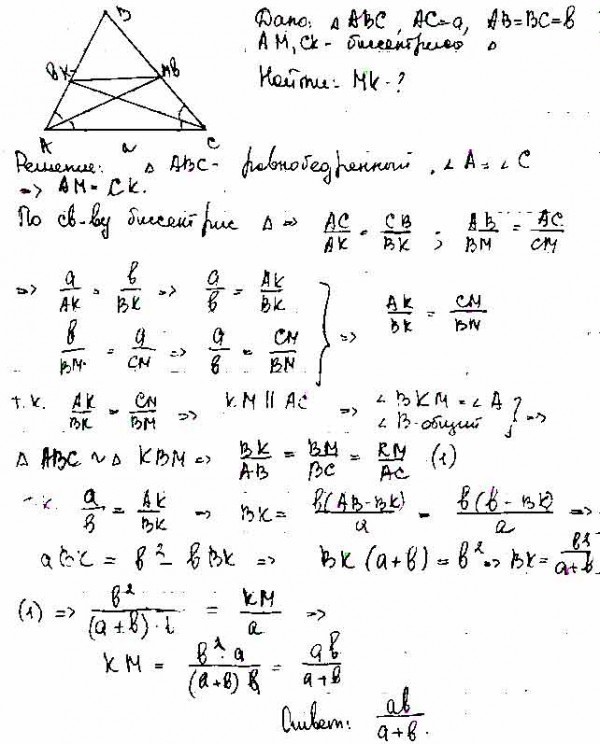 В
Дано: △ ABC, AC=a, AB=BC=в
AM, CK - биссектрисы △
Найти: MK-?
A
a
C
Решение: △ ABC- равнобедренный, ∠A=∠C
=> AM=CK.
По св-ву биссектрис △ => AC/AK = CB/BK ; AB/BM = AC/CM
=> a/AK = в/BK => a/в = AK/BK
в/BM = a/CM => a/в = CM/BM } => AK/BK = CM/BM
т.к. AK/BK = CM/BM => KM || AC => ∠BKM=∠A
∠B-общий } =>
△ ABC ~ △ KBM => BK/AB = BM/BC = KM/AC (1)
т.к. a/в = AK/BK => BK = в(AB-BK)/a = в(в-BK)/a =>
aBK = в² - вBK => BK(a+в) = в² => BK = в²/a+в
(1) => в²/(a+в)·в = KM/a =>
KM = в²·a/(a+в)в = aв/a+в
Ответ: aв/a+в.